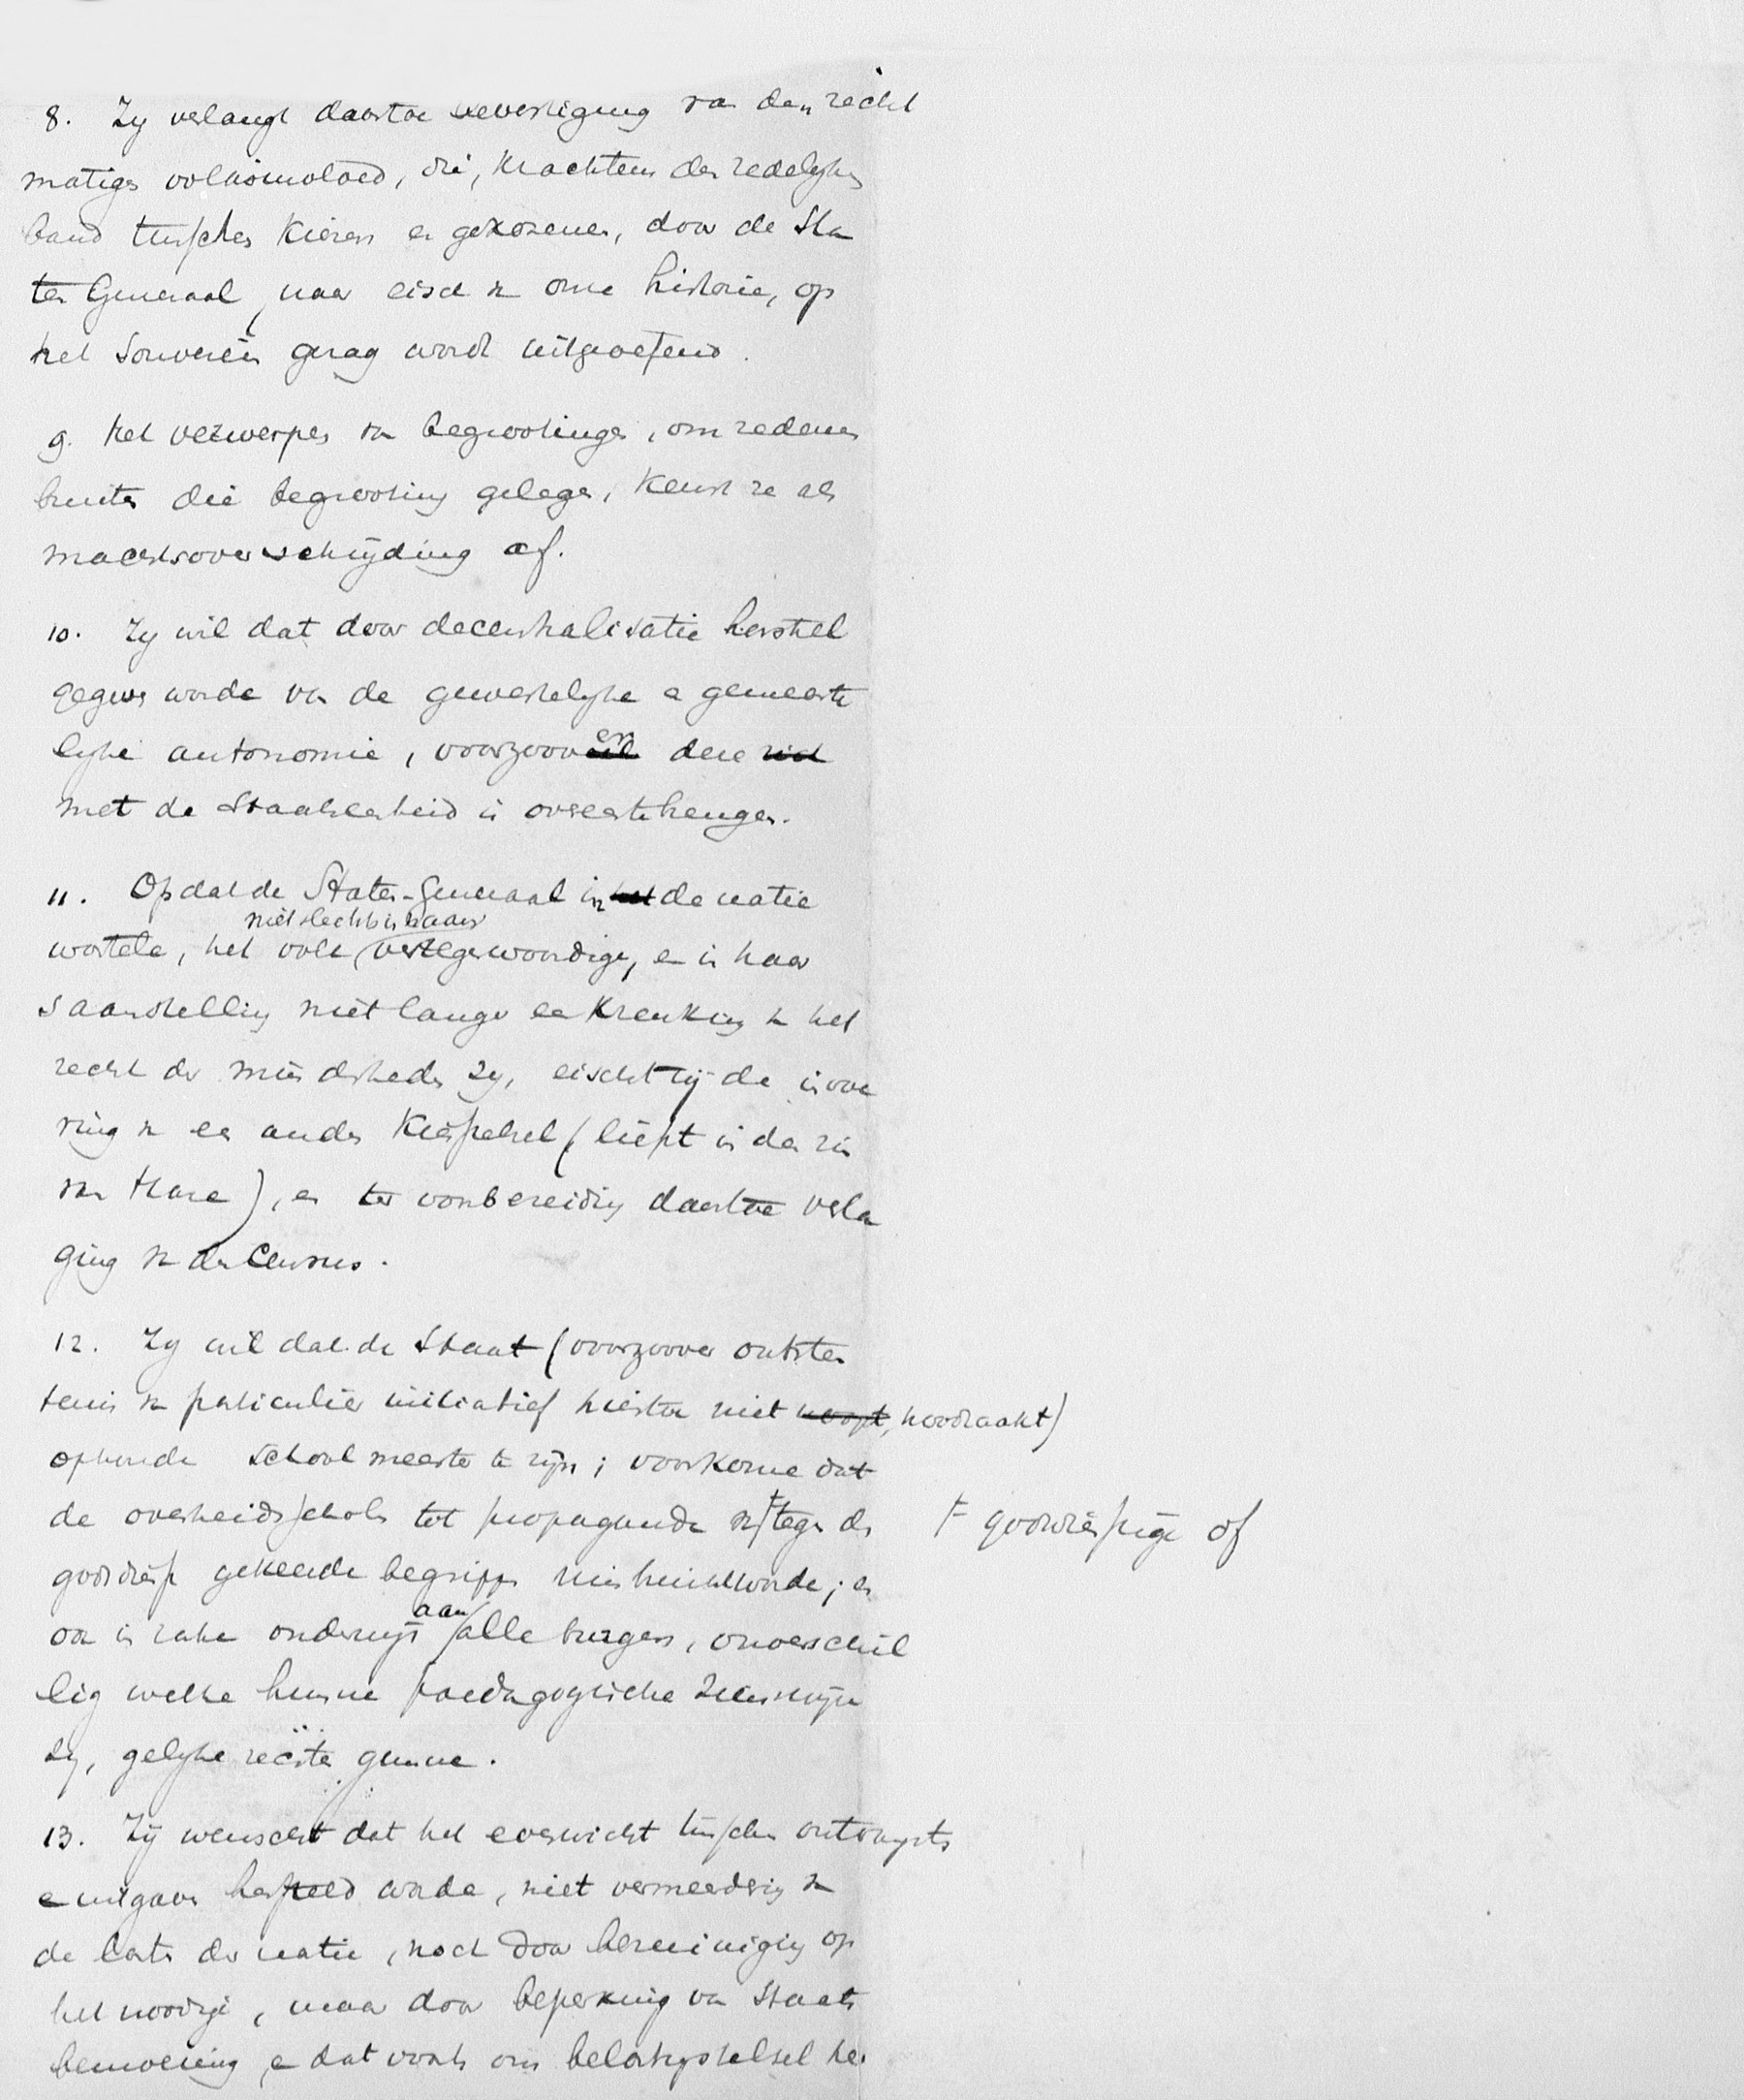 8. Zy verlangt daartoe bevestiging van den recht
matigen volksinvloed, die, krachtens den redelyken
band tusschen kiezers en gekozenen, door de Sta
ten Generaal, naar eisch van onze historie, op
het Souverein gezag wordt uitgeoefend.
9. Het verwerpen van begrootingen, om redenen
buiten die begrooting gelegen, keurt ze als
machtsoverschrijding af.
10. Zy wil dat door decentralisatie herstel
gegeven worde van de gewestelyke en gemeente
lyke autonomie, voorzooveren deze niet
met de Staatseenheid is overeentebrengen.
11. Opdat de Staten-Generaal in het de natie
niet slechts in naam
wortele, het volk vertegenwoordige, en in haar
saamstelling niet langer een krenking van het
recht der minderheden zy, eischt zij de invoe
ring van een ander Kiesstelsel (liefst in den zin
van Hare), en ter voorbereiding daartoe verla
ging van den Census.
12. Zy wil dat de Staat (voorzoover ontsten
tenis van particulier initiatief hiertoe niet noopt, noodzaakt)
ophoude schoolmeester te zijn; voorkome dat
de overheidsschool tot propaganda van F tegen de
F godsdienstige of
godsdienst gekeerde begrippen misbruikt worde; en
ook in zake onderwijs aan alle burgers, onverschil
lig welke hunne paedagogische zienswijze
zy, gelyke rechten gunne.
13. Zij wenscht dat het evenwicht tusschen ontvangsten
en uitgaven hersteld worde, niet vermeerdering van
de lasten der natie, noch door bezuiniging op
het noodige, maar door beperking van Staats
bemoeiing, en dat voorts ons belastingstelsel her